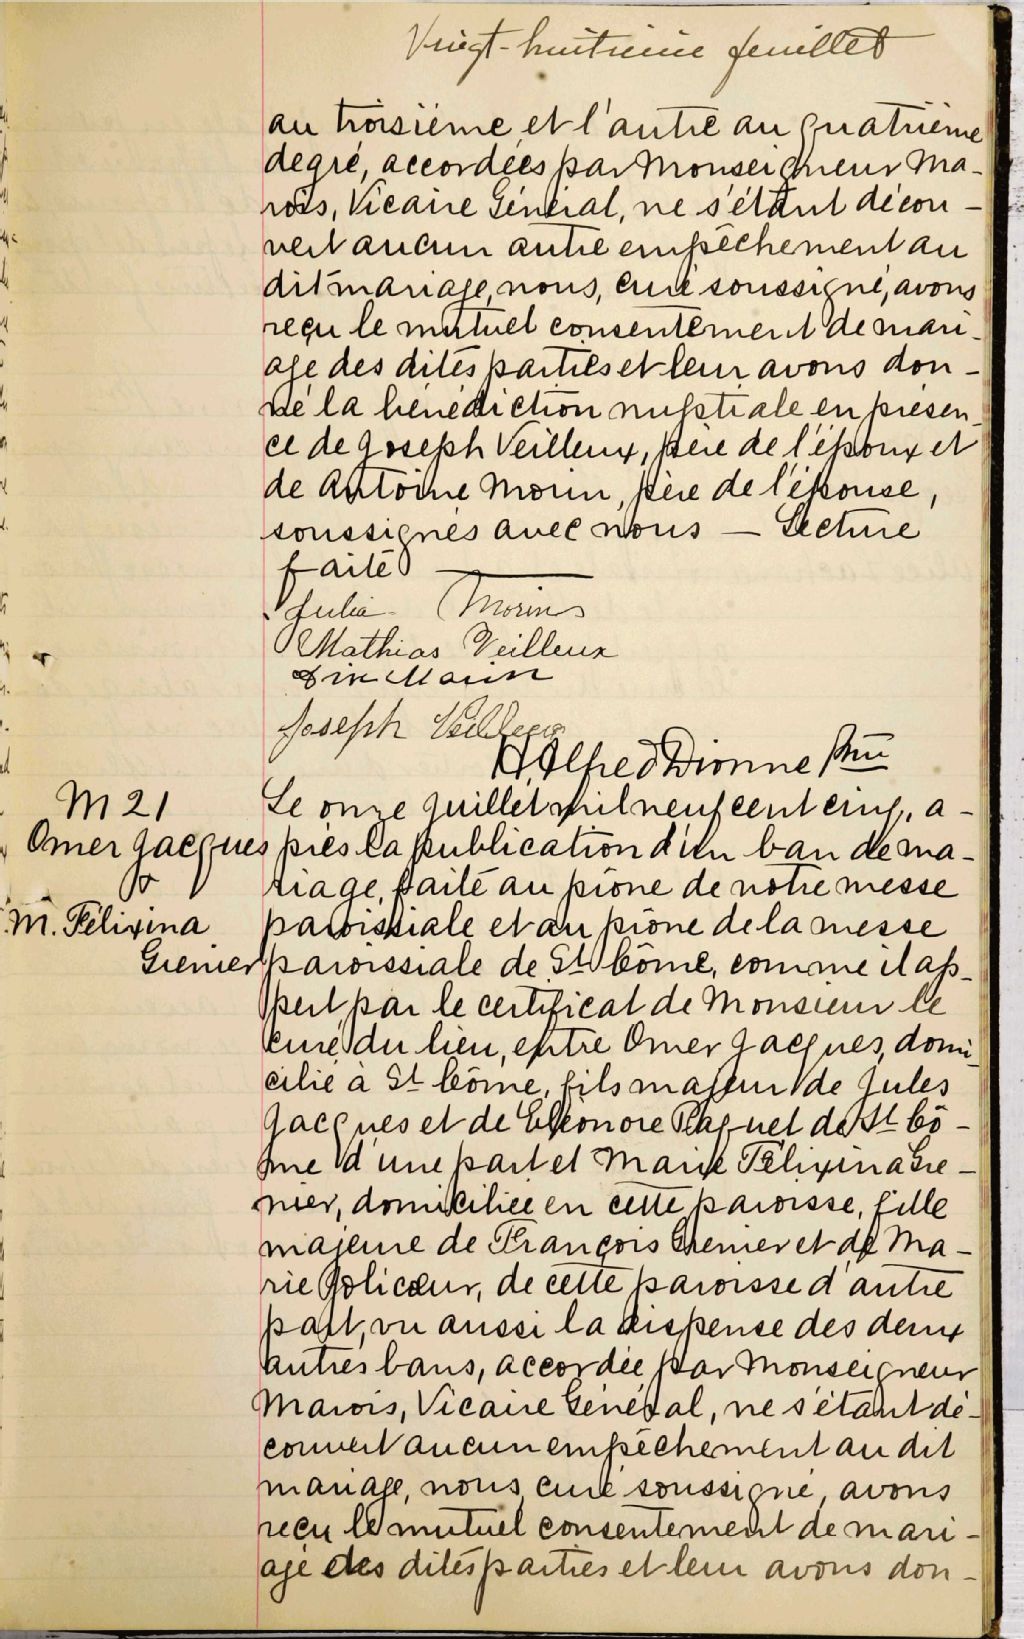 Vingt-huitième feuillet
au troisième et l'autre au quatrième
degré, accordées par Monseigneur Ma-
rois, Vicaire Général, ne s'étant décou-
vert aucun autre empêchement au
dit mariage, nous, curé soussigné, avons
reçu le mutuel consentement de mari-
age des dites parties et leur avons don-
né la bénédiction nuptiale en présen-
ce de Joseph Veilleux, père de l'époux et
de Antoine Morin, père de l'épouse,
soussignés avec nous — Lecture
faite
Julia Morin
Mathias Veilleux
Morin
Joseph Veilleux
H. Alfred Dionne Ptre
M 21
Omer Jacques
&
M. Félixina
Grenier
Le onze Juillet mil neuf cent cinq, a-
près la publication d'un ban de ma-
riage, faite au prône de notre messe
paroissiale et au prône de la messe
paroissiale de St Côme, comme il ap-
pert par le certificat de Monsieur le
curé du lieu, entre Omer Jacques, domi-
cilié à St Côme, fils majeur de Jules
Jacques et de Eléonore Paquet de St Cô-
me d'une part et Marie Félixina Gre-
nier, domiciliée en cette paroisse, fille
majeure de François Grenier et de Ma-
rie Jolicœur, de cette paroisse d'autre
part, vu aussi la dispense des deux
autres bans, accordée par Monseigneur
Marois, Vicaire Général, ne s'étant dé-
couvert aucun empêchement au dit
mariage, nous, curé soussigné, avons
reçu le mutuel consentement de mari-
age des dites parties et leur avons don-